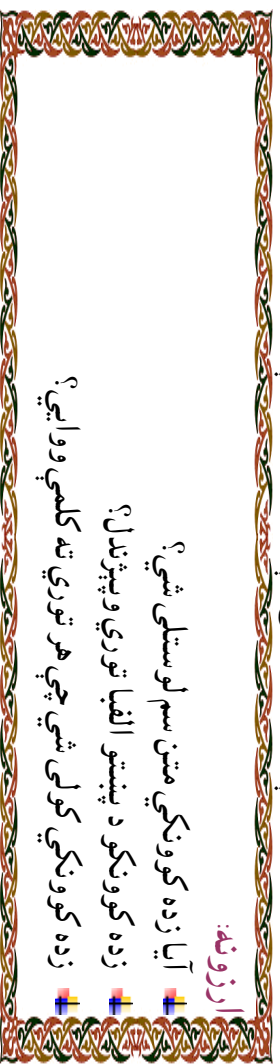 ارزونه:
آیا زده کوونکي متن سم لوستلی شي؟
زده کوونکو د پښتو الفبا توري وپېژندل؟
زده کوونکي کولی شي چې هر توري ته کلمې ووايي؟